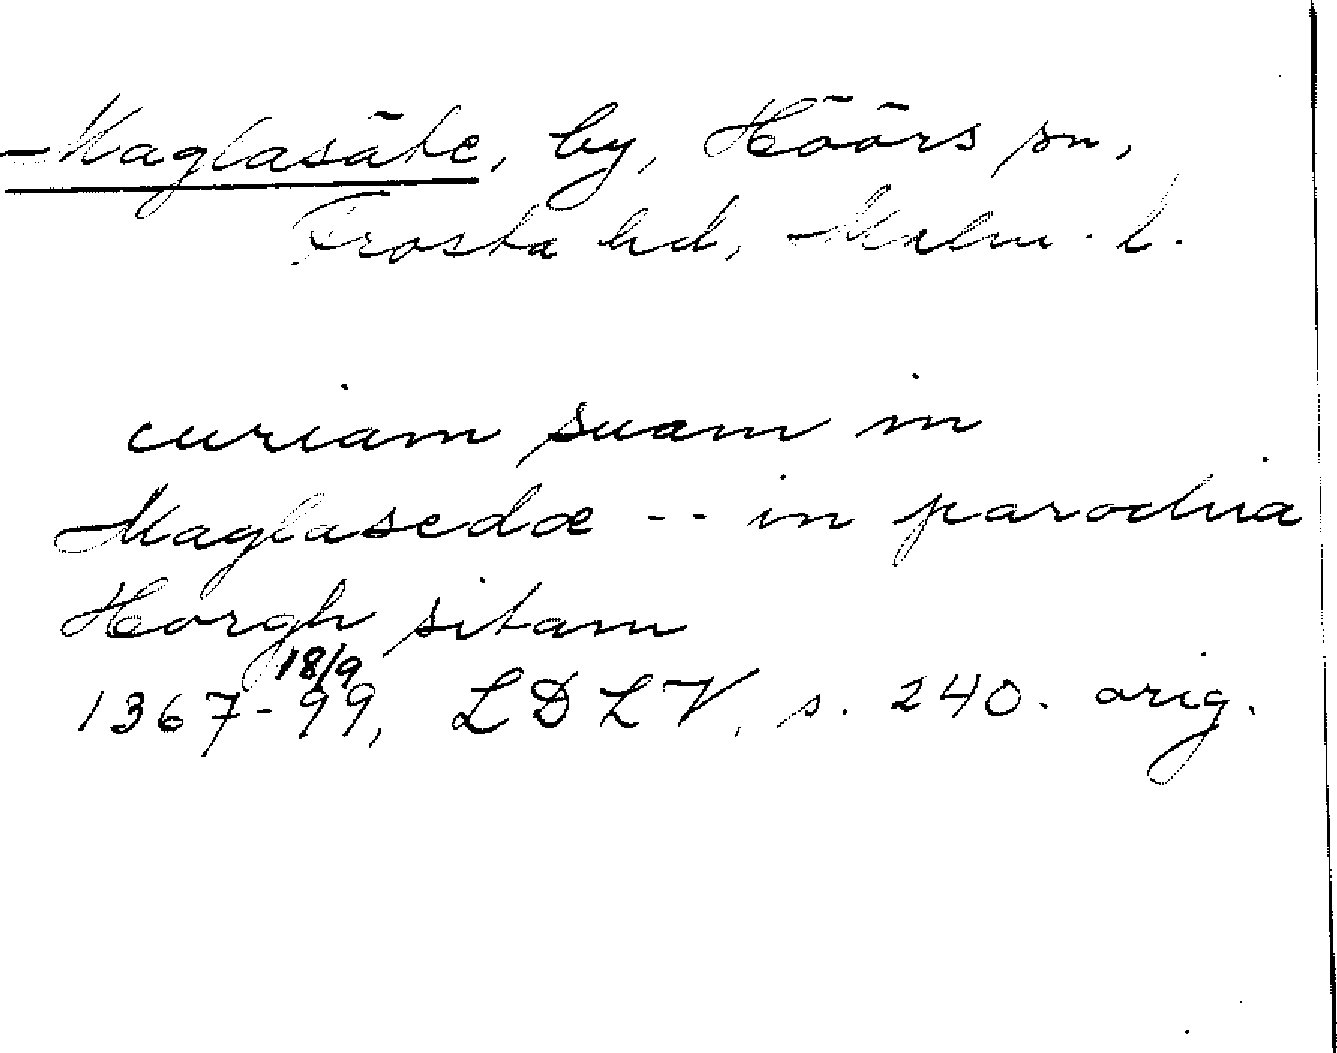 Maglasäte, by, Höörs sn,
Frosta hd, Malm. l.
curiam suam in
Maglasedæ -- in parochia
Horgh sitam
18/9
1367-99, LDLV, s. 240. orig.